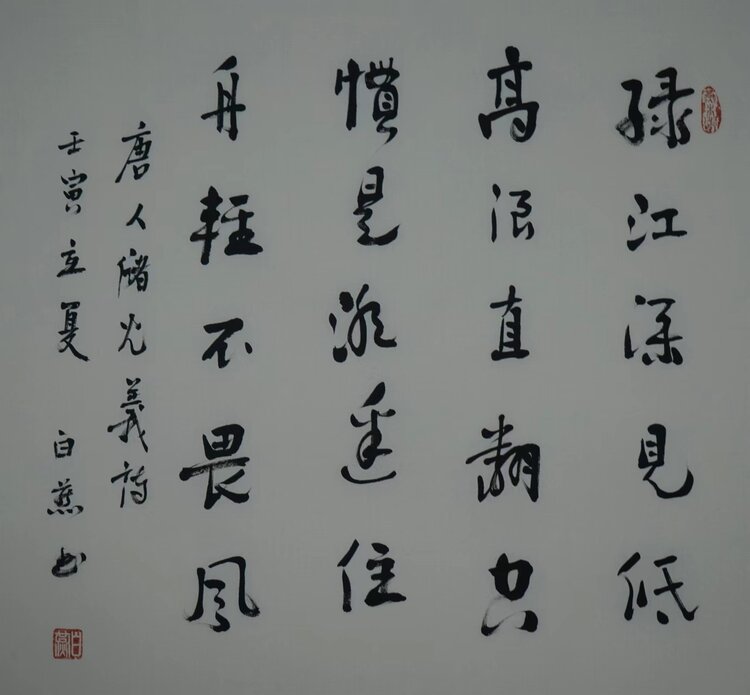 绿江深見低
高浪直翻空
慣是湖邊住
舟輕不畏风
唐人儲光義詩
壬寅立夏 白燕书